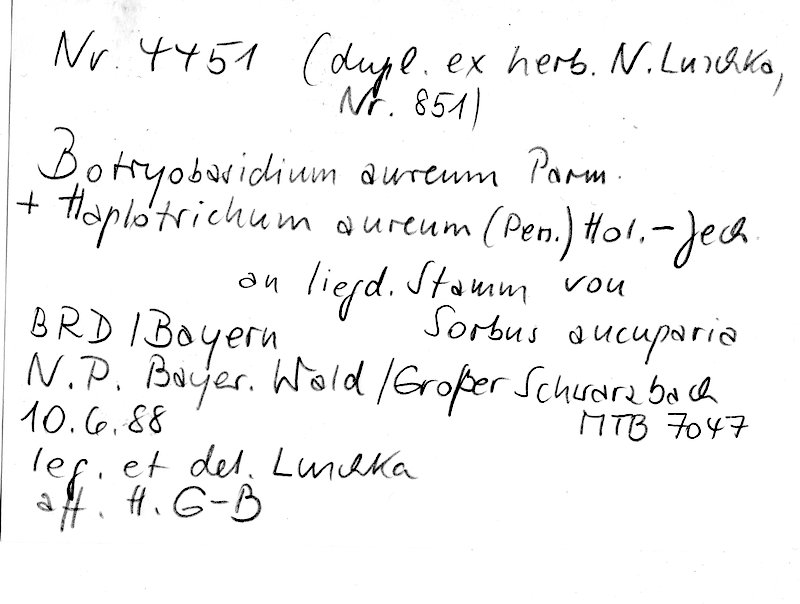 Nr. 4451 (dupl. ex herb. N. Luschka,
Nr. 851)
Botryobasidium aureum Parm.
+ Haplotrichum aureum (Pers.) Hol.-Jech.
an liegd. Stamm von
BRD / Bayern Sorbus aucuparia
N.P. Bayer. Wald / Großer Schwarzbach
10.6.88 MTB 7047
leg. et det. Luschka
aff. H. G-B